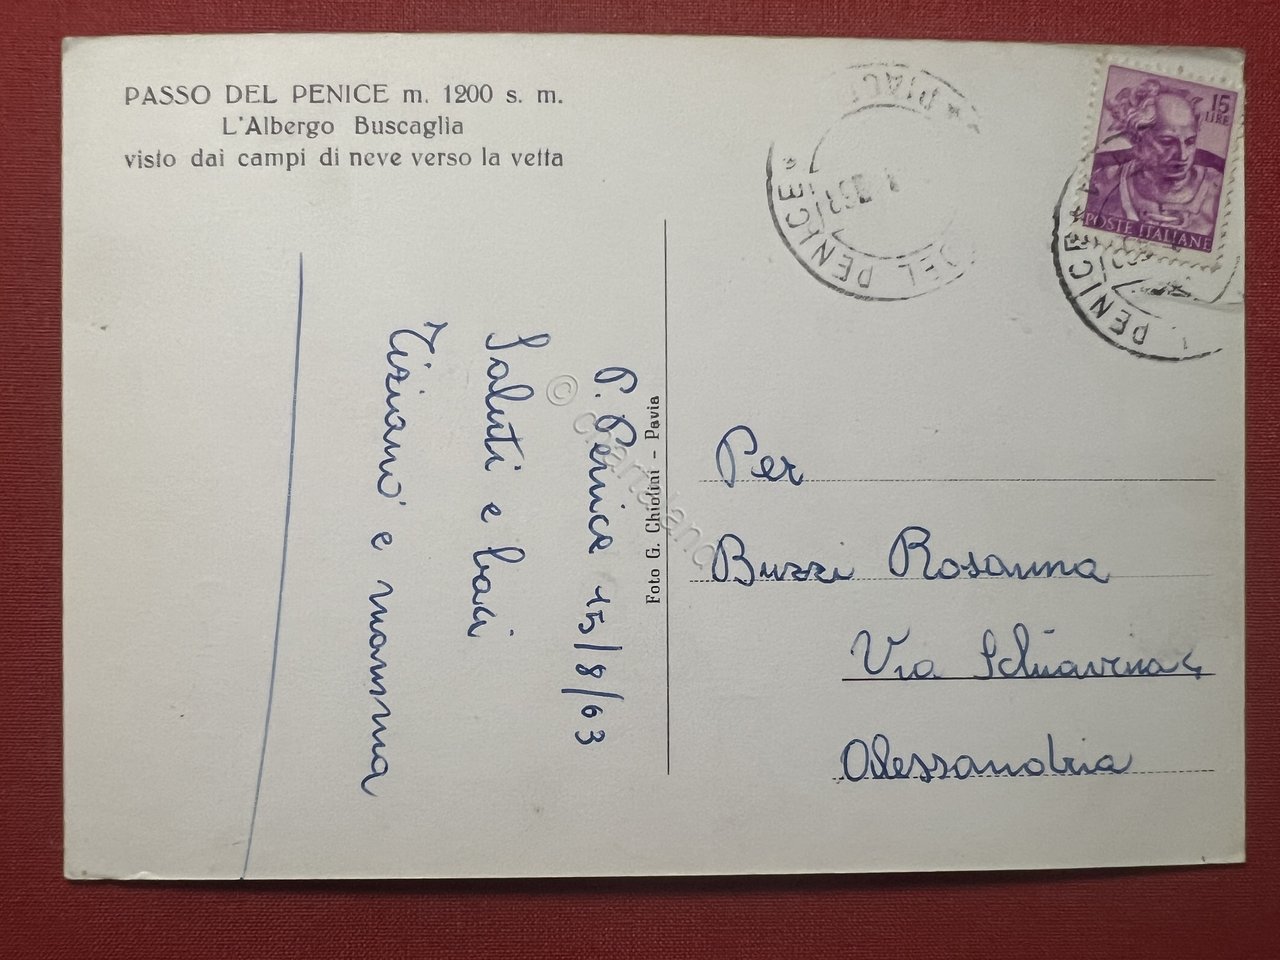 PASSO DEL PENICE m. 1200 s. m.
L'Albergo Buscaglia
visto dai campi di neve verso la vetta
P. Penice 15/8/63
Saluti e baci
Tiziano e mamma
Foto G. Chiolini - Pavia
Per
Buzzi Rosanna
Via Schiavina 4
Alessandria
15
LIRE
POSTE ITALIANE
DEL PENICE * PIAC
PENICE *
© cartoland